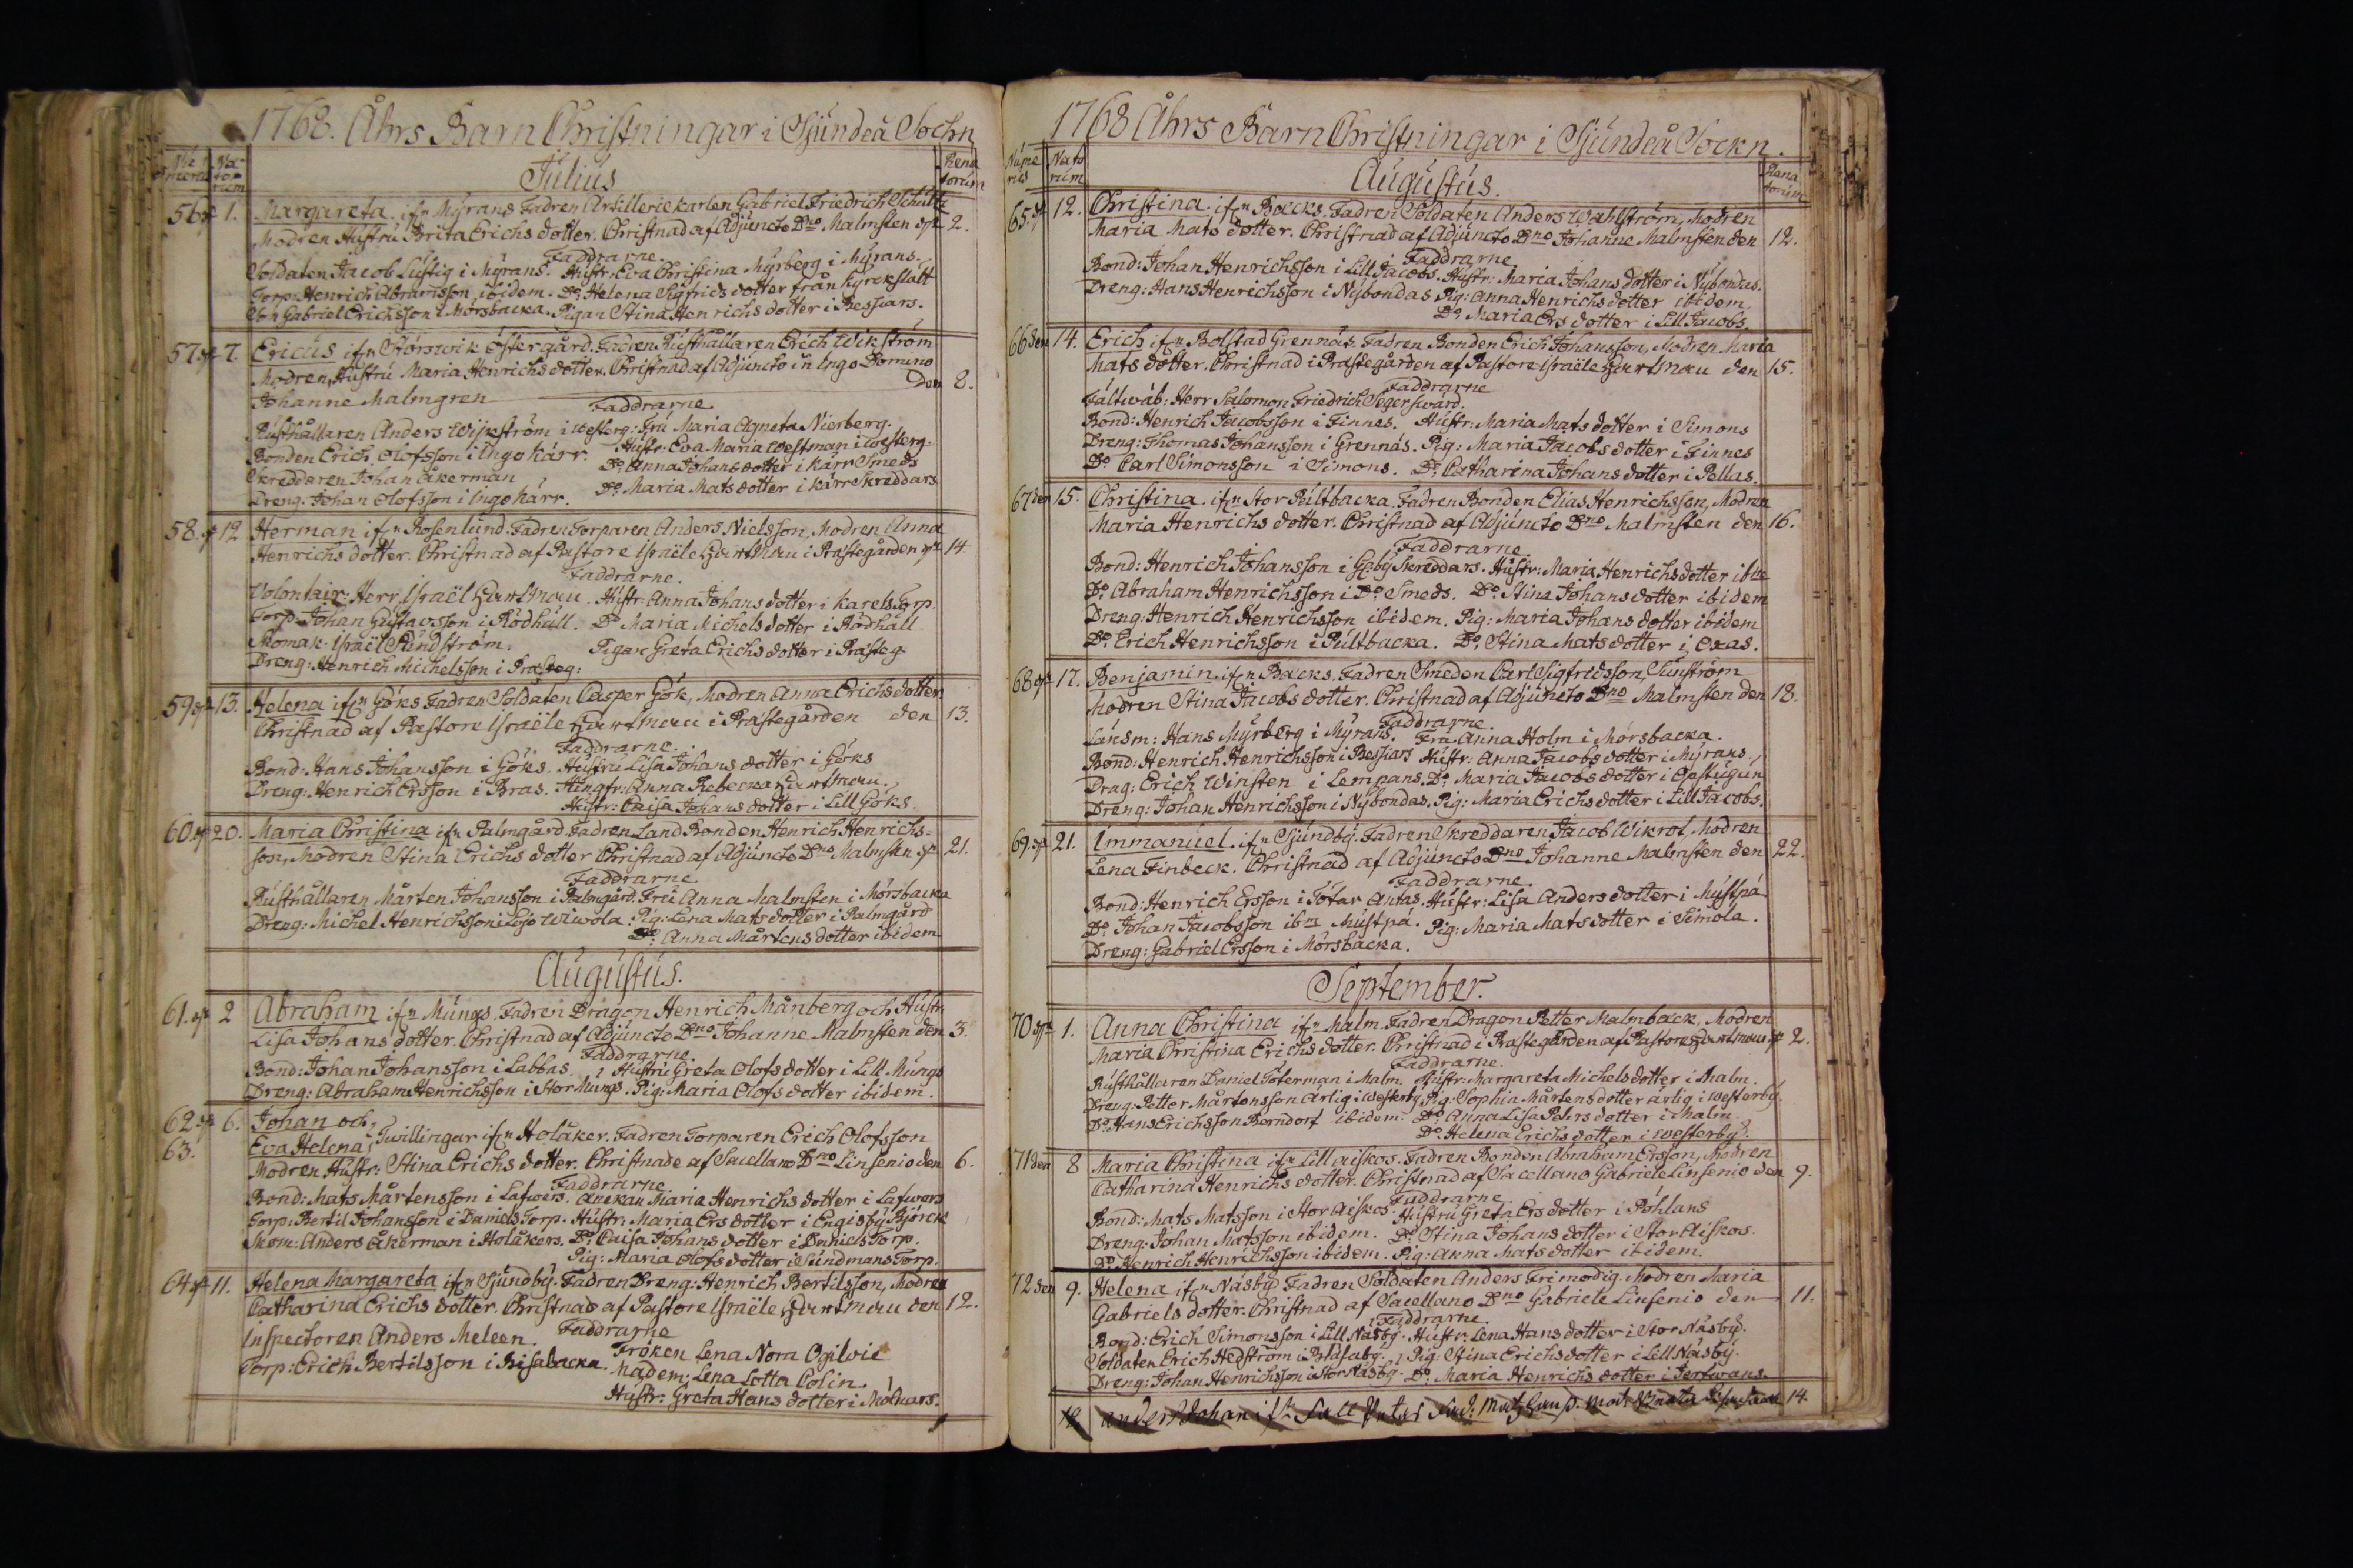 1768. Åhrs Barn Christningar i Sjundeå Sochn
Nu merus Na- to- rum Rena torum
Julius
56 1. Margareta. ifrn Myrans Fadren Artilleriekarlen Gabriel Friedrich Schultz
Modren Hustru Brita Erichs dotter. Christnad af Adjuncto Dno Malmsten 2.
Faddrarne.
Soldaten Jacob Lustig i Myrans. Hustr: Eva Christina Myrberg i Myrans.
Torp: Henrich Abramsson, ibidem. Do Helena Sigfrids dotter från Kyrckslätt
Gabriel Erichsson i Mörsbacka. Pigan Stina Henrichs dotter i Bessiars.
57 7. Ericus ifrn Störswik Östergård. Fadren Rusthållaren Erich Wikström
Modren, Hustru Maria Henrichs dotter. Christnad af Adjuncto in Ingo Domino
Johanne Malmgren den 8.
Faddrarne
Rusthållaren Anders Wijkström i westerg: Fru Maria Agneta Nierberg.
Bonden Erich Olofsson i Ingo kärr. Hustr: Eva Maria Westman i westerg.
Skreddaren Johan Åkerman Do Anna Johans dotter i kärr Smeds
Dreng. Johan Olofsson i Ingo kärr. Do Maria Mats dotter i kärr Skreddars
58. 12 Herman ifrn Rosenlund. Fadren Torparen Anders Nielsson, Modren Anna
Henrichs dotter. Christnad af Pastore Israële Hartman i Prästegården 14.
Faddrarne.
Volontair: Herr Israël Hartman. Hustr: Anna Johans dotter i Karels Torp.
Torp: Johan Gustavsson i Rödhäll. Do Maria Michels dotter i Rödhäll
Skomak: Israël Sundström. Pigan Greta Erichs dotter i Prästeg.
Dreng: Henrich Michelsson i Prästeg:
59 13. Helena ifrn Göks Fadren Soldaten Casper Gök, Modren Anna Erichs dotter
Christnad af Pastore Israële Hartman i Prästegården den 13.
Faddrarne.
Bond: Hans Johansson i Göks. Hustru Lisa Johans dotter i Göks
Dreng: Henrich Ersson i Bras. Jungfr: Anna Rebecka Hartman.
Hustr: Caisa Johans dotter i Lill Göks.
60 20. Maria Christina ifrn Palmgård. Fadren Land Bonden Henrich Henrichs-
son, Modren Stina Erichs dotter Christnad af Adjuncto Dno Malmsten 21.
Faddrarne
Rusthållaren Mårten Johansson i Palmgård. Fru Anna Malmsten i Mörsbacka
Dreng: Michel Henrichsson i Lojo Wiwola. Pig: Lena Mats dotter i Palmgård
Do. Anna Mårtens dotter ibidem
Augustus.
61. 2 Abraham ifrn Mungs. Fadren Dragon Henrich Månberg och Hustr
Lisa Johans dotter. Christnad af Adjuncto Dno Johanne Malmsten den 3.
Faddrarne.
Bond: Johan Johansson i Labbas. Hustru Greta Olofs dotter i Lill Mungs
Dreng: Abraham Henrichsson i Stor Mungs. Pig: Maria Olofs dotter ibidem.
62 6. Johan och
63. Eva Helena Twillingar ifrn Holåker. Fadren Torparen Erich Olofsson
Modren Hustr: Stina Erichs dotter. Christnade af Sacellano Dno Linsenio den 6.
Faddrarne
Bond: Mats Mårtensson i Lafwers. Änckan Maria Henrichs dotter i Lafwers
Torp: Bertil Johansson i Daniels Torp. Hustr: Maria Ers dotter i Engisby Björck
Skom: Anders Åkerman i Holåkers. Do. Caisa Johans dotter i Daniels Torp.
Pig: Maria Olofs dotter i Sundmans Torp.
64 11. Helena Margareta ifrn Sjundby. Fadren Dreng: Henrich Bertilsson, Modren
Catharina Erichs dotter. Christnad af Pastore Israële Hartman den 12.
Faddrarne
Inspectoren Anders Meleen. Fröken Lena Nora Ogilvie
Torp: Erich Bertilsson i Risabacka. Madem: Lena Lotta Colin.
Hustr: Greta Hans dotter i Molnars.
1768 Åhrs Barn Christningar i Sjundeå Sockn.
Nume rus Nato rum Rena torum
Augustus.
65. 12. Christina. ifrn Backs. Fadren Soldaten Anders Wahlström, Modren
Maria Mats dotter. Christnad af Adjuncto Dno Johanne Malmsten den 12.
Faddrarne
Bond: Johan Henrichsson i Lill Jacobs. Hustr: Maria Johans dotter i Nybondas.
Dreng: Hans Henrichsson i Nybondas Pig: Anna Henrichs dotter ibidem.
Do. Maria Ers dotter i Lill Jacobs.
66 den 14. Erich ifrn Bolstad Grennäs. Fadren Bonden Erich Johansson, Modren Maria
Mats dotter. Christnad i Prästegården af Pastore Israële Hartman den 15.
Faddrarne
Fältwäb: Herr Salomon Friedrich Segersward.
Bond: Henrich Jacobsson i Finnes. Hustr: Maria Mats dotter i Simons
Dreng: Thomas Johansson i Grennäs. Pig: Maria Jacobs dotter i Finnes
Do Carl Simonsson i Simons. Do. Catharina Johans dotter i Pellas.
67 den 15. Christina. ifrn Stor Pultbacka Fadren Bonden Elias Henrichsson, Modren
Maria Henrichs dotter. Christnad af Adjuncto Dno Malmsten den 16.
Faddrarne
Bond: Henrich Johansson i Gäby Skreddars. Hustr: Maria Henrichs dotter ibm
Do. Abraham Henrichsson i Do Smeds. Do Stina Johans dotter ibidem
Dreng: Henrich Henrichsson ibidem. Pig: Maria Johans dotter ibidem
Do. Erich Henrichsson i Pultbacka. Do. Stina Mats dotter i Oxas.
68 17. Benjamin. ifrn Backs. Fadren Smeden Carl Sigfridsson, Sunström
Modren Stina Jacobs dotter. Christnad af Adjuncto Dno Malmsten den 18.
Faddrarne.
Länsm: Hans Myrberg i Myrans. Fru Anna Holm i Mörsbacka.
Bond: Henrich Henrichsson i Bessiars Hustr: Anna Jacobs dotter i Myrans.
Drag: Erich Winsten i Lempans. Do. Maria Jacobs dotter i Ojestugun
Dreng: Johan Henrichsson i Nybondas. Pig: Maria Erichs dotter i Lill Jacobs.
69. 21. Immanuel. ifrn Sjundby. Fadren Skreddaren Jacob Wikrot, Modren
Lena Finbeck. Christnad af Adjuncto Dno Johanne Malmsten den 22.
Faddrarne
Bond: Henrich Ersson i Tötar Antas. Hustr: Lisa Anders dotter i Mustpä
Do. Johan Jacobsson ibm Mustpä. Pig: Maria Mats dotter i Simola.
Dreng: Gabriel Ersson i Mörsbacka.
September.
70 1. Anna Christina ifrn Malm. Fadren Dragon Petter Malmback, Modren
Maria Christina Erichs dotter. Christnad i Prästegården af Pastore Hartman 2.
Faddrarne.
Rusthållaren Daniel Töterman i Malm. Hustr: Margareta Michels dotter i Malm.
Dreng: Petter Mårtensson Ärlig i Westerby. Pig: Sophia Mårtens dotter ärlig i westerby.
Do. Hans Erichsson Borndorf ibidem. Do Anna Lisa Pehrs dotter i Malm.
Do. Helena Erichs dotter i westerby.
71 den 8 Maria Christina ifrn Lill aiskos. Fadren Bonden Abraham Ersson, Modren
Catharina Henrichs dotter. Christnad af Sacellano Gabriele Linsenio den 9.
Faddrarne
Bond: Mats Matsson i Stor Aiskos. Hustru Greta Ers dotter i Pöhlans
Dreng: Johan Matsson ibidem. Do. Stina Johans dotter i Stor Aiskos.
Do. Henrich Henrichsson ibidem. Pig: Anna Mats dotter ibidem.
72 den 9. Helena ifrn Näsby. Fadren Soldaten Anders Frimodig. Modren Maria
Gabriels dotter. Christnad af Sacellano Dno Gabriele Linsenio den 11.
Faddrarne.
Bond: Erich Simonsson i Lill Näsby. Hustr: Lena Hans dotter i Stor Näsby.
Soldaten Erich Hedström i Blåsabg. Pig: Stina Erichs dotter i Lill Näsby.
Dreng: Johan Henrichsson i Stor Näsby. Do. Maria Henrichs dotter i Jerfwans.
Johan ifrn 14.